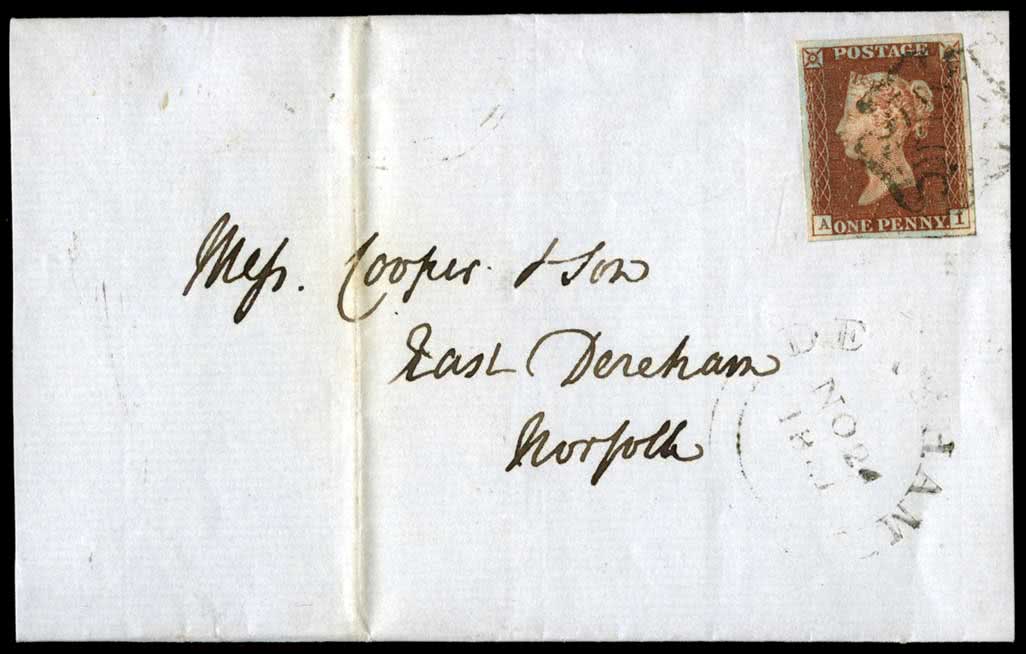 POSTAGE
A ONE PENNY. I
Mess. Cooper & Son
East Dereham
Norfolk
DE HAM
NO 2